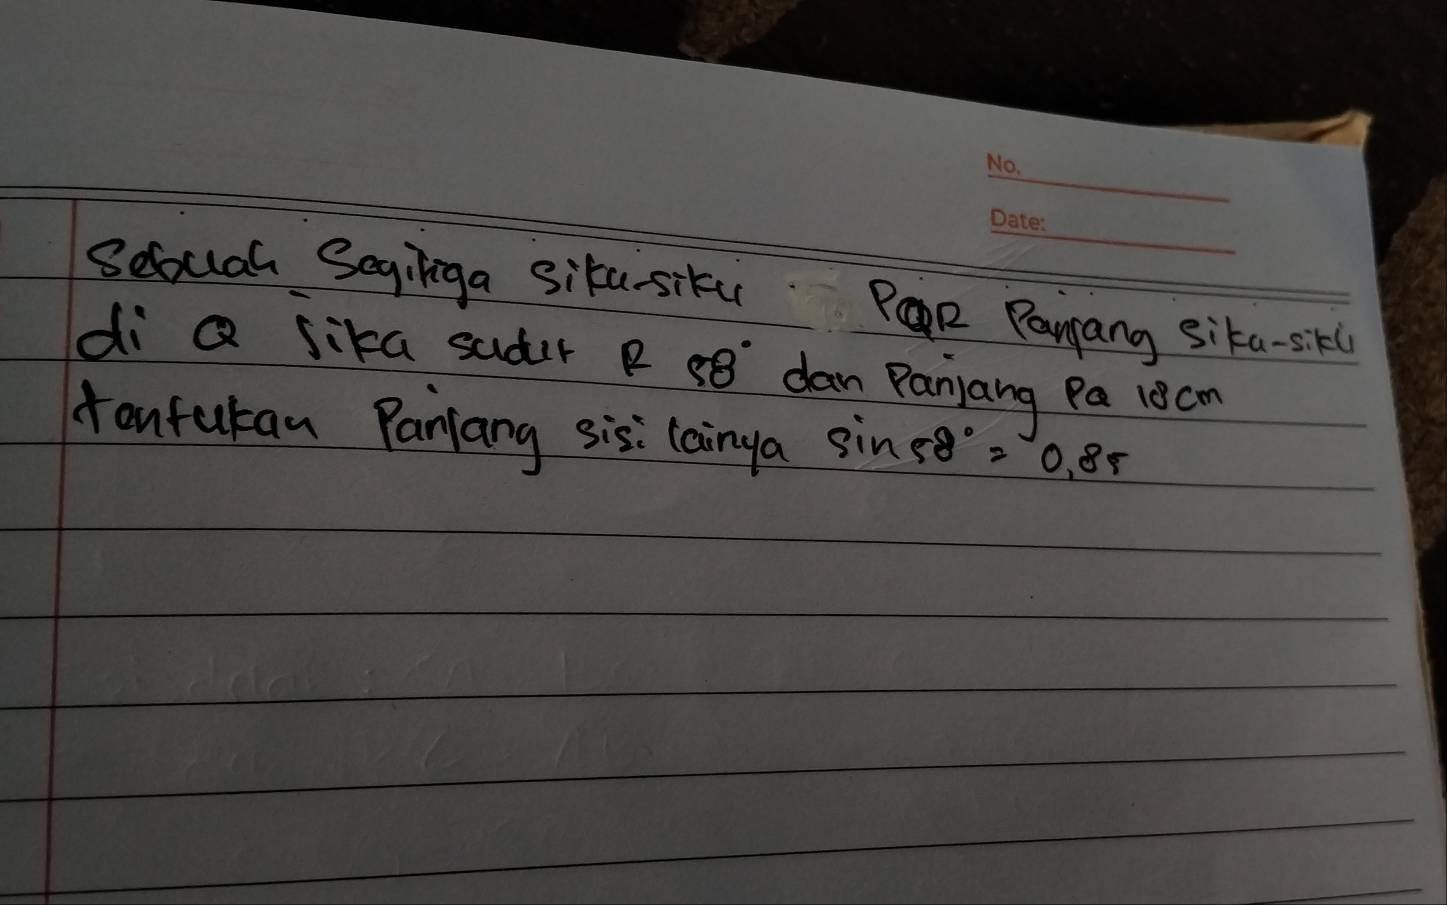 No.
Date:
Sebuah Segitiga Siku-siku PQR Panjang Siku-siku
di Q Jika sudut R 58° dan Panjang PQ 18 cm
tentukan Panjang sisi lainya sin 58° = 0,85